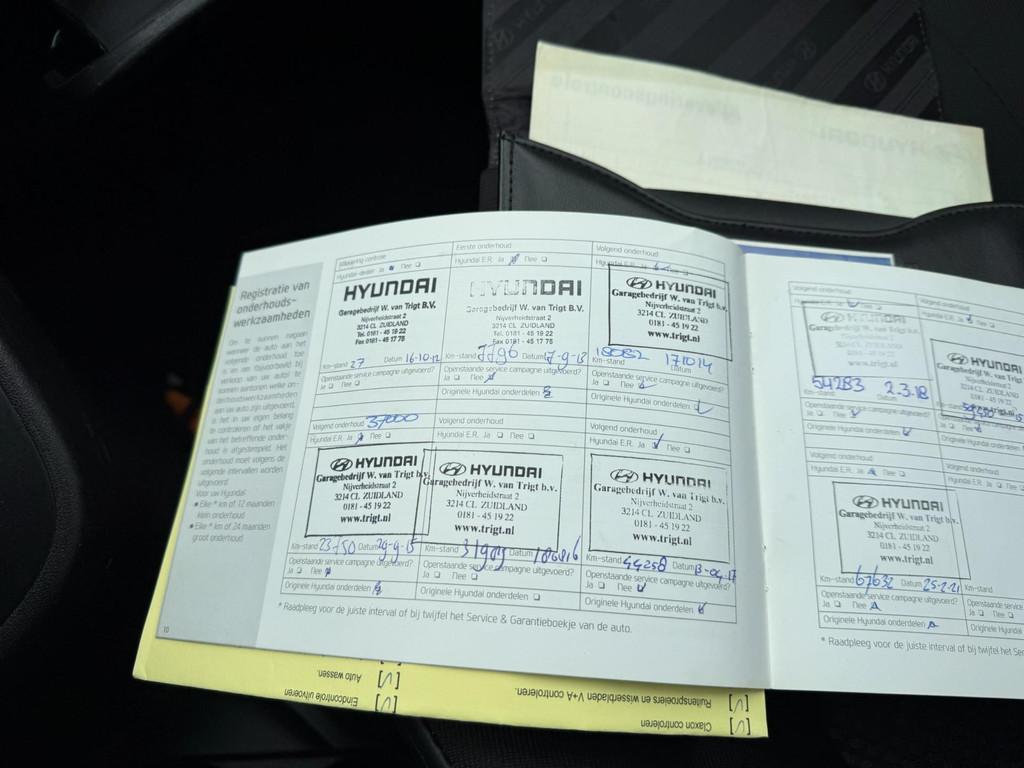 HYUNDAI
Registratie van
onderhouds-
werkzaamheden
Om te kunnen nagaan
wanneer de auto aan het
volgende onderhoud toe
is en om bijvoorbeeld bij
verkoop van uw auto te
kunnen aantonen welke on-
derhoudswerkzaamheden
aan uw auto zijn uitgevoerd,
is het in uw eigen belang
te controleren of het vakje
van het betreffende onder-
houd is afgestempeld. Het
onderhoud moet volgens de
volgende intervallen worden
uitgevoerd.
Voor uw Hyundai:
• Elke * km of 12 maanden
klein onderhoud
• Elke * km of 24 maanden
groot onderhoud
10
Aflevering controle
Hyundai-dealer Ja Nee
HYUNDAI
Garagebedrijf W. van Trigt B.V.
Nijverheidstraat 2
3214 CL ZUIDLAND
Tel. 0181 - 45 19 22
Fax 0181 - 45 17 76
Km-stand 27 Datum 16-10-12
Openstaande service campagne uitgevoerd?
Ja Nee
Eerste onderhoud
Hyundai E.R. Ja Nee
HYUNDAI
Garagebedrijf W. van Trigt B.V.
Nijverheidstraat 2
3214 CL ZUIDLAND
Tel. 0181 - 45 19 22
Fax 0181 - 45 17 76
Km-stand 7796 Datum 17-9-13
Openstaande service campagne uitgevoerd?
Ja Nee
Originele Hyundai onderdelen
Volgend onderhoud
Hyundai E.R. Ja Nee
HYUNDAI
Garagebedrijf W. van Trigt b.v.
Nijverheidstraat 2
3214 CL ZUIDLAND
0181 - 45 19 22
www.trigt.nl
Km-stand 18082 Datum 171014
Openstaande service campagne uitgevoerd?
Ja Nee
Originele Hyundai onderdelen
Volgend onderhoud 37000
Hyundai E.R. Ja Nee
HYUNDAI
Garagebedrijf W. van Trigt b.v.
Nijverheidstraat 2
3214 CL ZUIDLAND
0181 - 45 19 22
www.trigt.nl
Km-stand 23750 Datum 29-9-15
Openstaande service campagne uitgevoerd?
Ja Nee
Originele Hyundai onderdelen
Volgend onderhoud
Hyundai E.R. Ja Nee
HYUNDAI
Garagebedrijf W. van Trigt b.v.
Nijverheidstraat 2
3214 CL ZUIDLAND
0181 - 45 19 22
www.trigt.nl
Km-stand 31989 Datum
Openstaande service campagne uitgevoerd?
Ja Nee
Originele Hyundai onderdelen
Volgend onderhoud
Hyundai E.R. Ja Nee
HYUNDAI
Garagebedrijf W. van Trigt b.v.
Nijverheidstraat 2
3214 CL ZUIDLAND
0181 - 45 19 22
www.trigt.nl
Km-stand 44258 Datum 13-04-17
Openstaande service campagne uitgevoerd?
Ja Nee
Originele Hyundai onderdelen
* Raadpleeg voor de juiste interval of bij twijfel het Service & Garantieboekje van de auto.
Volgend onderhoud
Hyundai E.R. Ja Nee
HYUNDAI
54283 2.3.18
Openstaande service campagne uitgevoerd?
Ja Nee
Originele Hyundai onderdelen
Volgend onderhoud
Hyundai E.R. Ja Nee
HYUNDAI
Garagebedrijf W. van Trigt
Nijverheidstraat 2
3214 CL ZUIDLAND
www.trigt.nl
Originele Hyundai
Volgend onderhoud
Hyundai E.R. Ja Nee
HYUNDAI
Garagebedrijf W. van Trigt b.v.
Nijverheidstraat 2
3214 CL ZUIDLAND
0181 - 45 19 22
www.trigt.nl
Km-stand 67632 Datum 25-2-21
Openstaande service campagne uitgevoerd?
Ja Nee
Originele Hyundai onderdelen
Volgend onderhoud
Hyundai E.R. Ja
Km-stand
Openstaande service
Ja Nee
Originele Hyundai
* Raadpleeg voor de juiste interval of bij twijfel het Ser
Claxon controleren [V]
Ruitensproeiers en wisserbladen V+A controleren. [V]
Eindcontrole uitvoeren [V]
Auto wassen. [V]